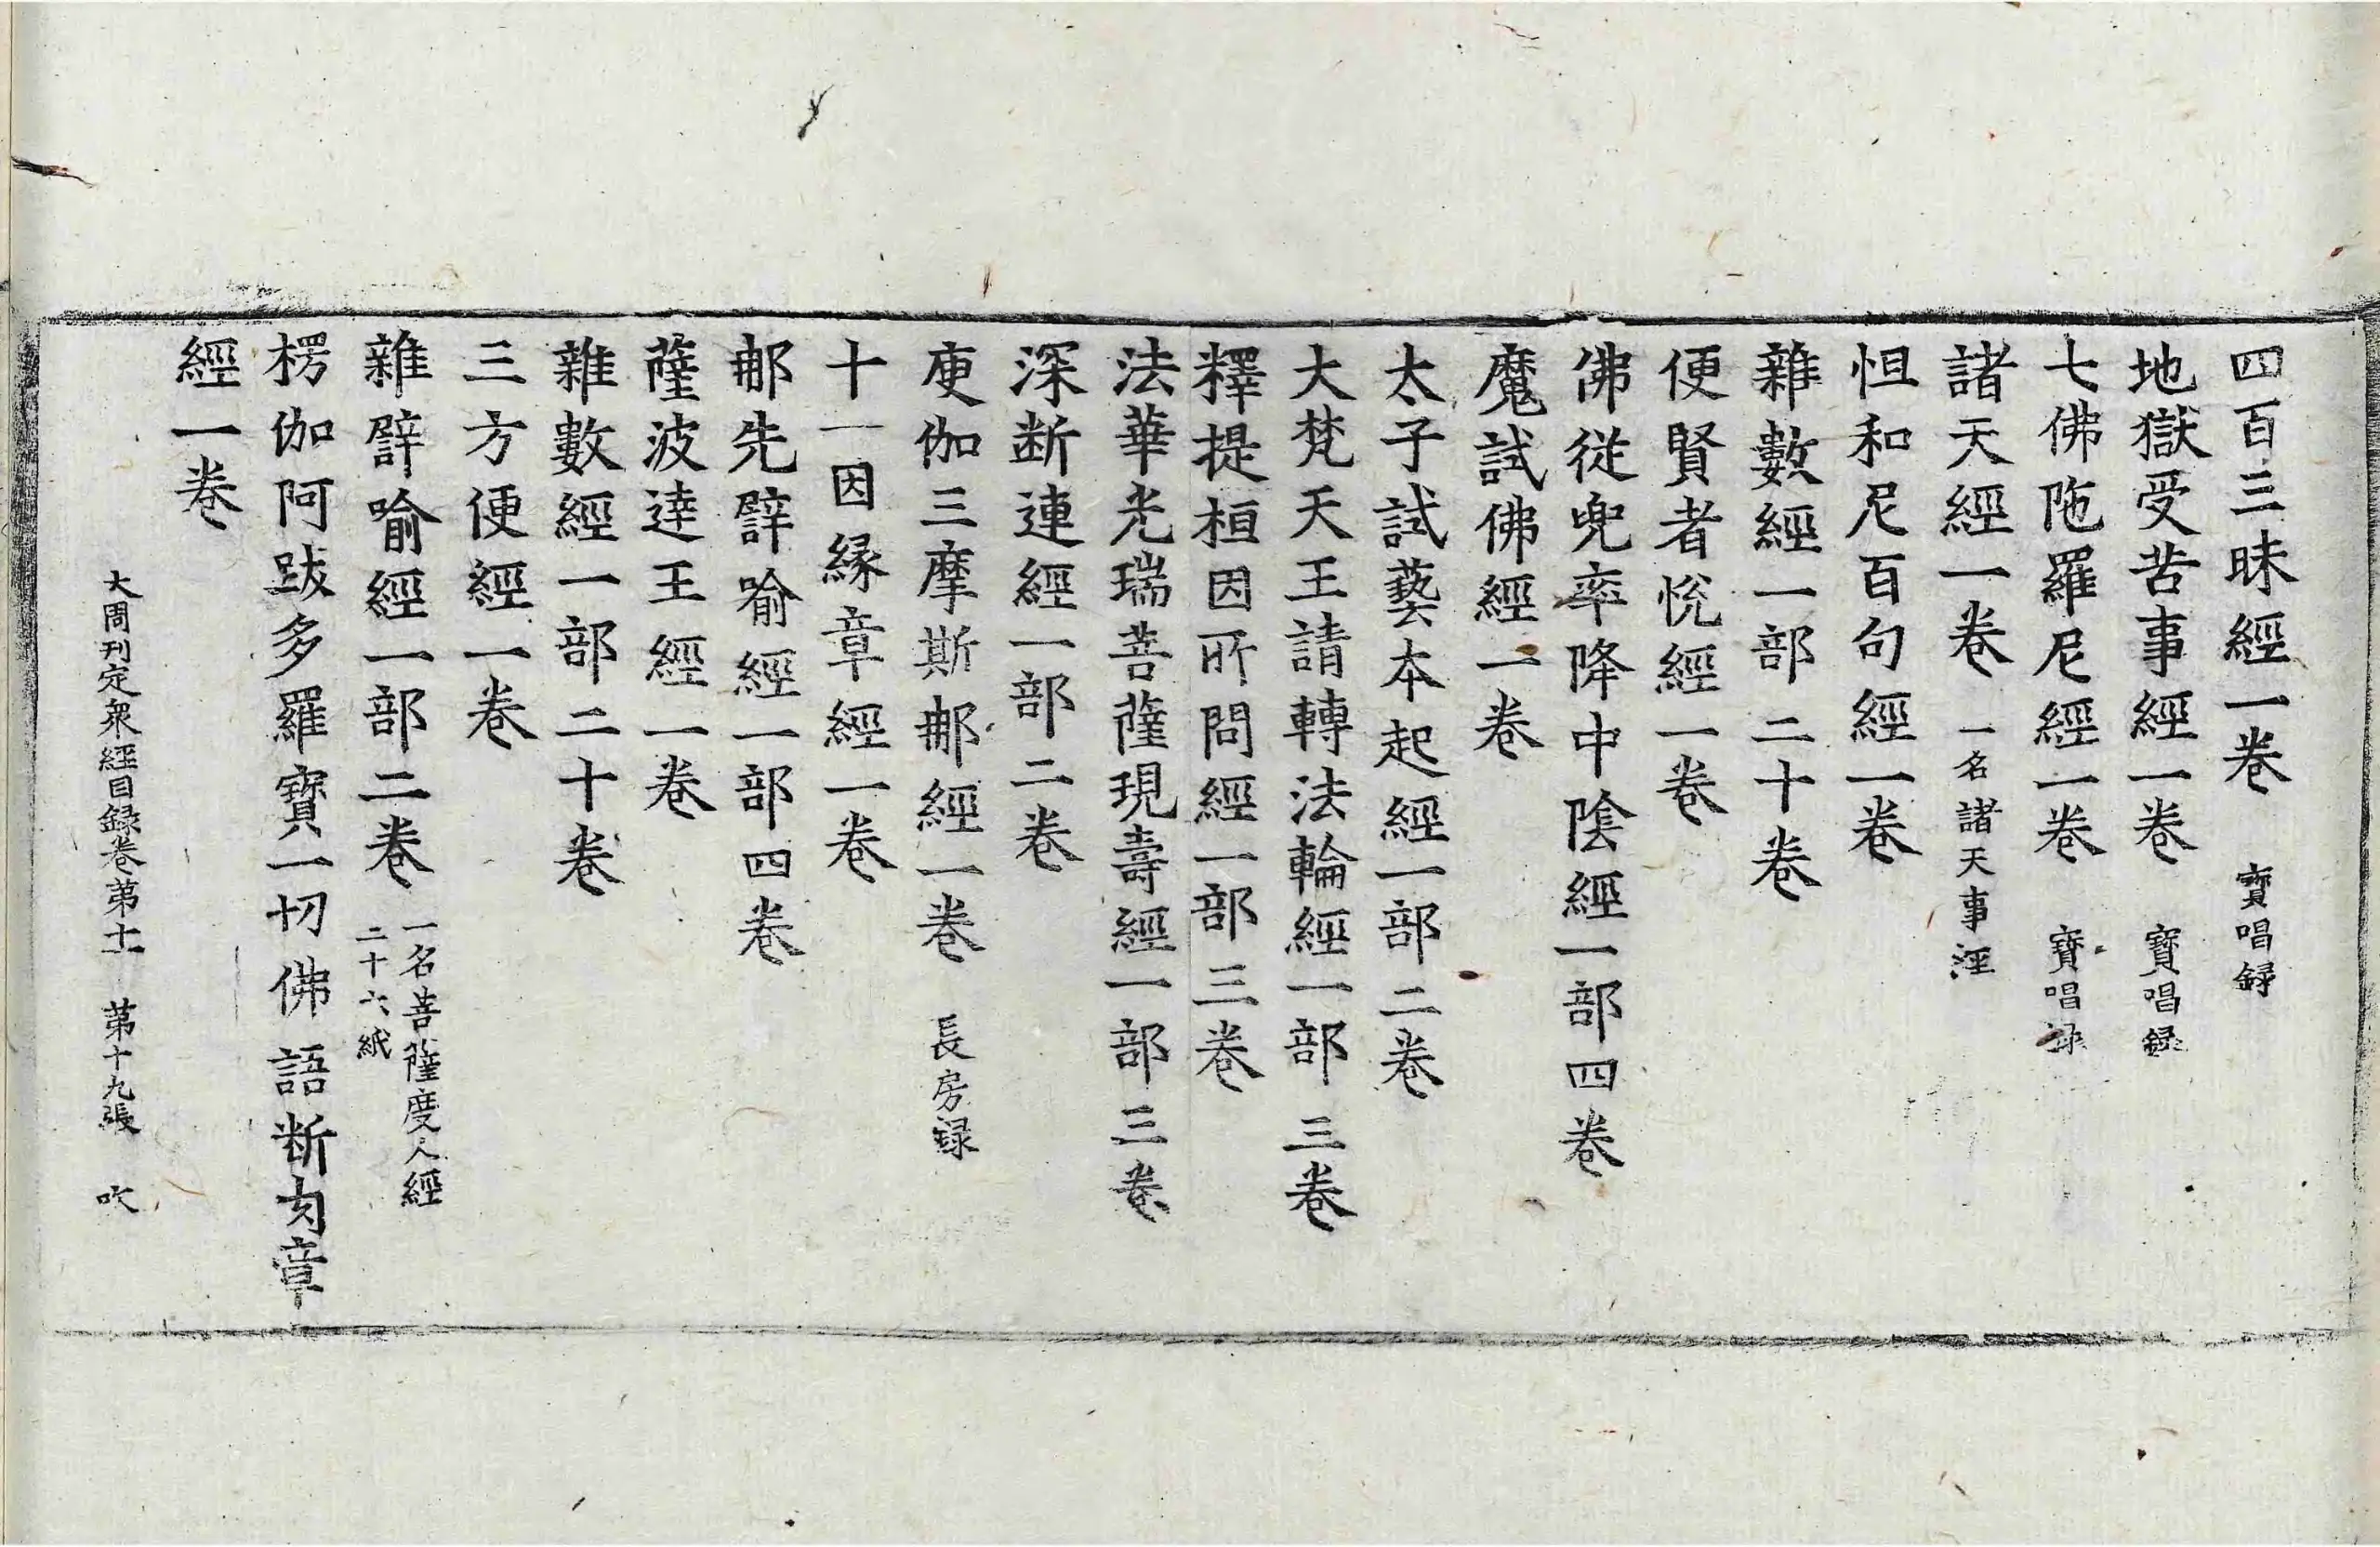 四百三昧經一卷 寶唱録
地獄受苦事經一卷 寶唱録
七佛陁羅尼經一卷 寶唱録
諸天經一卷 一名諸天事經
怛和尼百句經一卷
雜數經一部二十卷
便賢者悅經一卷
佛從兜率降中陰經一部四卷
魔試佛經一卷
太子試藝本起經一部二卷
大梵天王請轉法輪經一部三卷
釋提桓因所問經一部三卷
法華光瑞菩薩現壽經一部三卷
深断連經一部二卷
庾伽三摩斯郍經一卷 長房録
十一因縁章經一卷
郍先譬喻經一部四卷
薩波達王經一卷
雜數經一部二十卷
三方便經一卷
雜譬喻經一部二卷 一名菩薩度人經
二十六紙
楞伽阿跋多羅寶一切佛語断句章
經一卷
大周刊定衆經目録卷第十一 第十九張 吹